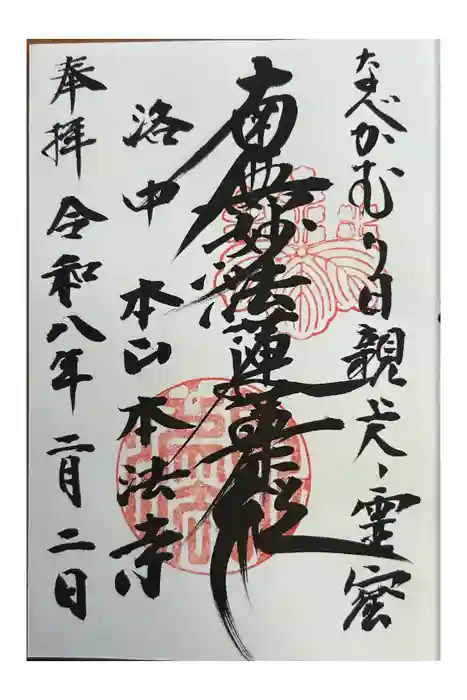 なべかむり日親上人霊窟
南無妙法蓮華経
洛中 本山本法寺
奉拝 令和八年二月二日